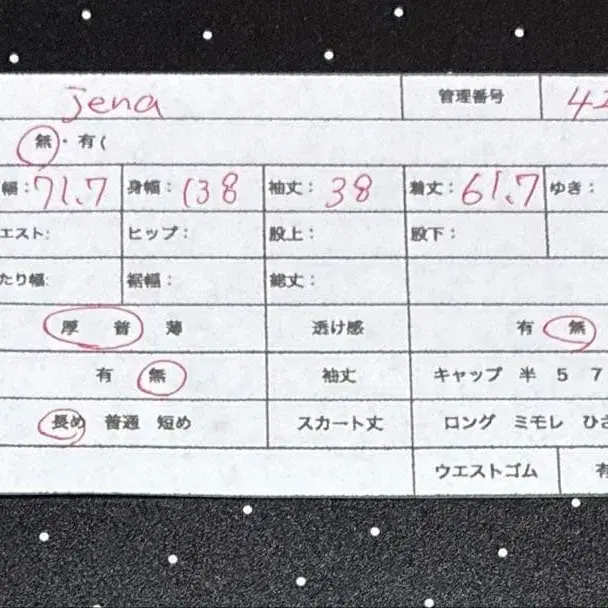 jena 管理番号 42
無・有(
幅:71.7 身幅:138 袖丈:38 着丈:61.7 ゆき:
エスト: ヒップ: 股上: 股下:
たり幅: 裾幅: 総丈:
厚 普 薄 透け感 有 無
有 無 袖丈 キャップ 半 5 7
長め 普通 短め スカート丈 ロング ミモレ ひざ
ウエストゴム 有